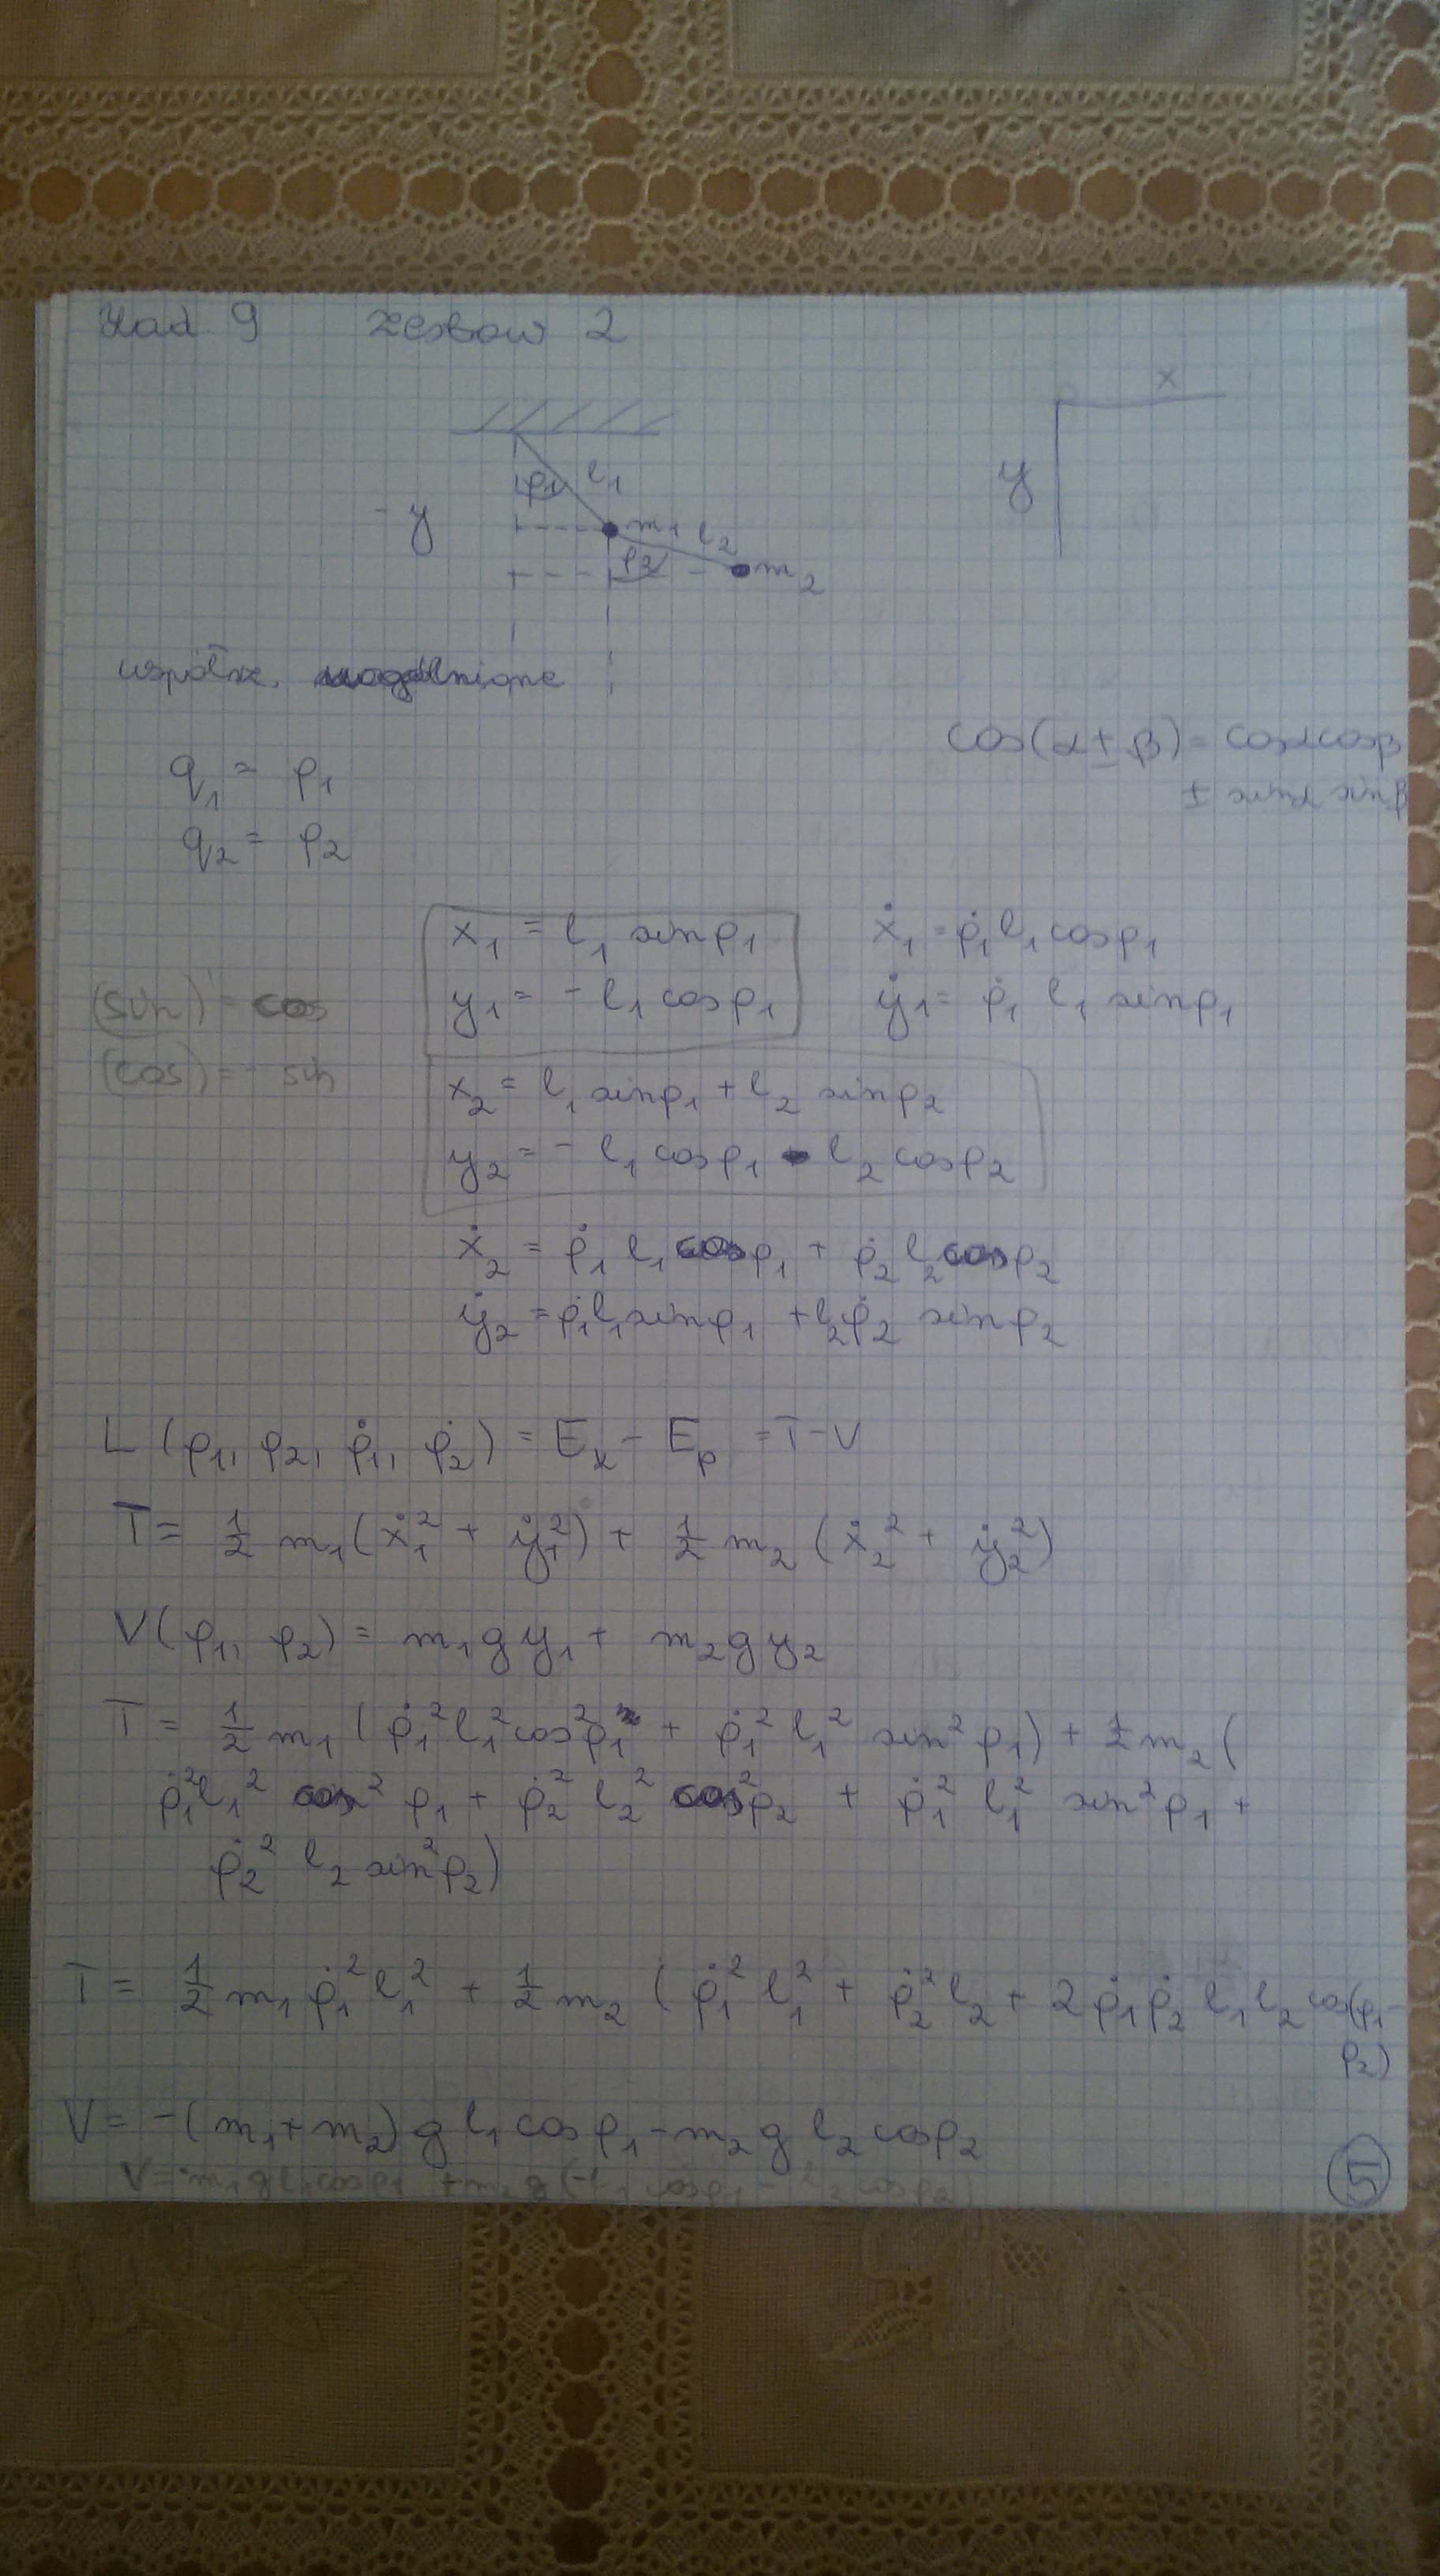 Zad 9 zestaw 2
x
φ1 l1
y
- y
m1 l2
φ2 m2
współrz. uogólnione
cos(α ± β) = cosα cosβ
± sinα sinβ
q1 = φ1
q2 = φ2
x1 = l1 sinφ1 ẋ1 = φ̇1 l1 cosφ1
(sin)' = cos y1 = - l1 cosφ1 ẏ1 = φ̇1 l1 sinφ1
(cos)' = - sin x2 = l1 sinφ1 + l2 sinφ2
y2 = - l1 cosφ1 - l2 cosφ2
ẋ2 = φ̇1 l1 cosφ1 + φ̇2 l2 cosφ2
ẏ2 = φ̇1 l1 sinφ1 + l2 φ̇2 sinφ2
L (φ1, φ2, φ̇1, φ̇2) = Ek - Ep = T - V
T = 1/2 m1 (ẋ1² + ẏ1²) + 1/2 m2 (ẋ2² + ẏ2²)
V(φ1, φ2) = m1 g y1 + m2 g y2
T = 1/2 m1 (φ̇1² l1² cos²φ1 + φ̇1² l1² sin²φ1) + 1/2 m2 (
φ̇1² l1² cos²φ1 + φ̇2² l2² cos²φ2 + φ̇1² l1² sin²φ1 +
φ̇2² l2 sin²φ2)
T = 1/2 m1 φ̇1² l1² + 1/2 m2 (φ̇1² l1² + φ̇2² l2 + 2 φ̇1 φ̇2 l1 l2 cos(φ1 -
φ2)
V = -(m1+m2) g l1 cosφ1 - m2 g l2 cosφ2
V = - m1 g l1 cosφ1 + m2 g (-l1 cosφ1 - l2 cosφ2)
5